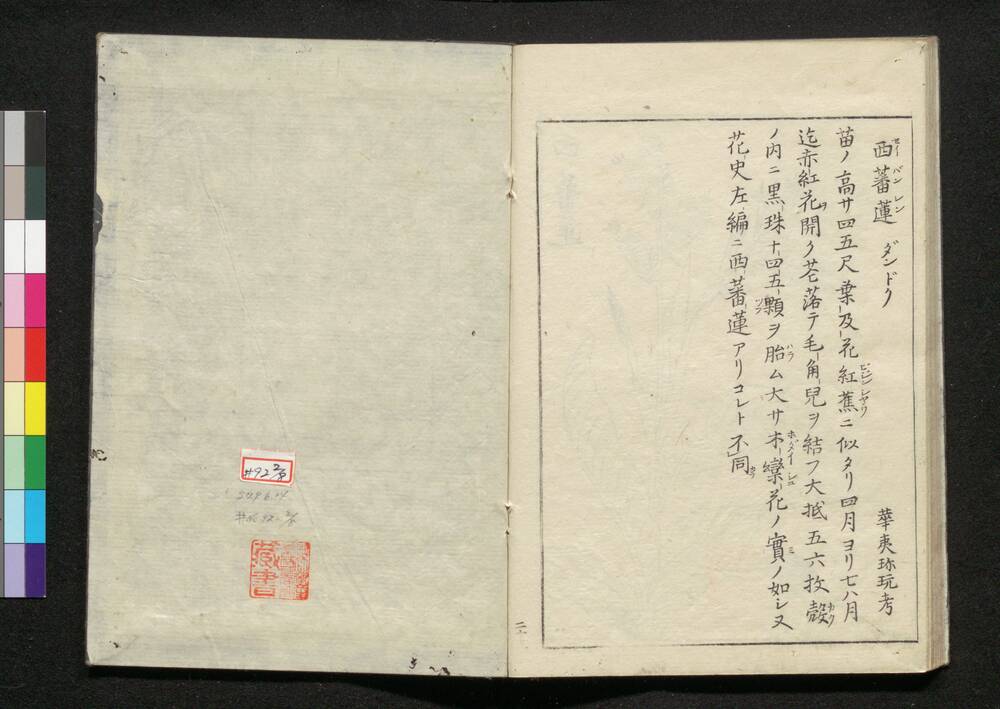 西蕃蓮 ダンドク 華夷珎玩考
苗ノ高サ四五尺葉及花紅蕉ニ似タリ四月ヨリ七八月
迄赤紅花開ク花落テ毛角兒ヲ結フ大抵五六枚殻
ノ内ニ黒珠十四五顆ヲ胎ム大サ木欒花ノ實ノ如シ又
花史左編ニ西蕃蓮アリコレト不同
藏書